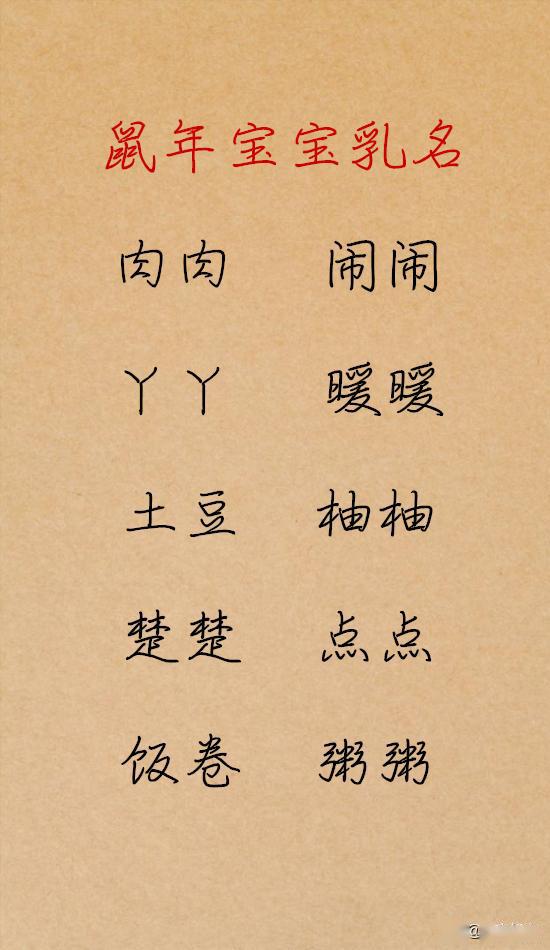 鼠年宝宝乳名
肉肉 闹闹
丫丫 暖暖
土豆 柚柚
楚楚 点点
饭卷 粥粥
@